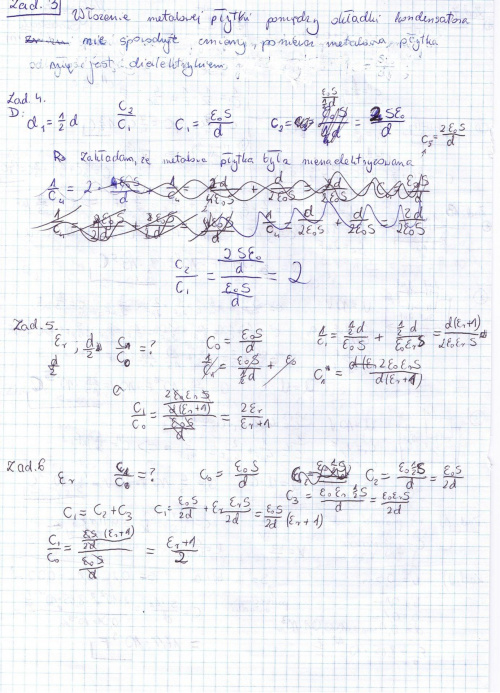 Zad. 3 Włożenie metalowej płytki pomiędzy okładki kondensatora
nie spowoduje zmiany, ponieważ metalowa płytka
jest dielektrykiem
Zad. 4.
D: d₁ = ½ d C₂/C₁ C₁ = ε₀S/d C₂ = ε₀S/½d = 2Sε₀/d C₅ = 2ε₀S/d
Zakładam, że metalowa płytka była nienaelektryzowana
1/C₄ = d/2ε₀S + d/2ε₀S = 2d/2ε₀S
C₂/C₁ = (2Sε₀/d)/(ε₀S/d) = 2
Zad. 5.
εr ; d/2 C₁/C₀ = ? C₀ = ε₀S/d 1/C₁ = ½d/ε₀S + ½d/ε₀εrS = d(εr+1)/2ε₀εrS
C₁ = 2ε₀εrS/d(εr+1)
C₁/C₀ = (2ε₀εrS/d(εr+1))/(ε₀S/d) = 2εr/εr+1
Zad. 6
εr C₁/C₀ = ? C₀ = ε₀S/d C₂ = ε₀½S/d = ε₀S/2d
C₃ = ε₀εr½S/d = ε₀εrS/2d
C₁ = C₂ + C₃ C₁ = ε₀S/2d + εrε₀S/2d = ε₀S/2d (εr+1)
C₁/C₀ = (ε₀S/2d (εr+1))/(ε₀S/d) = εr+1/2